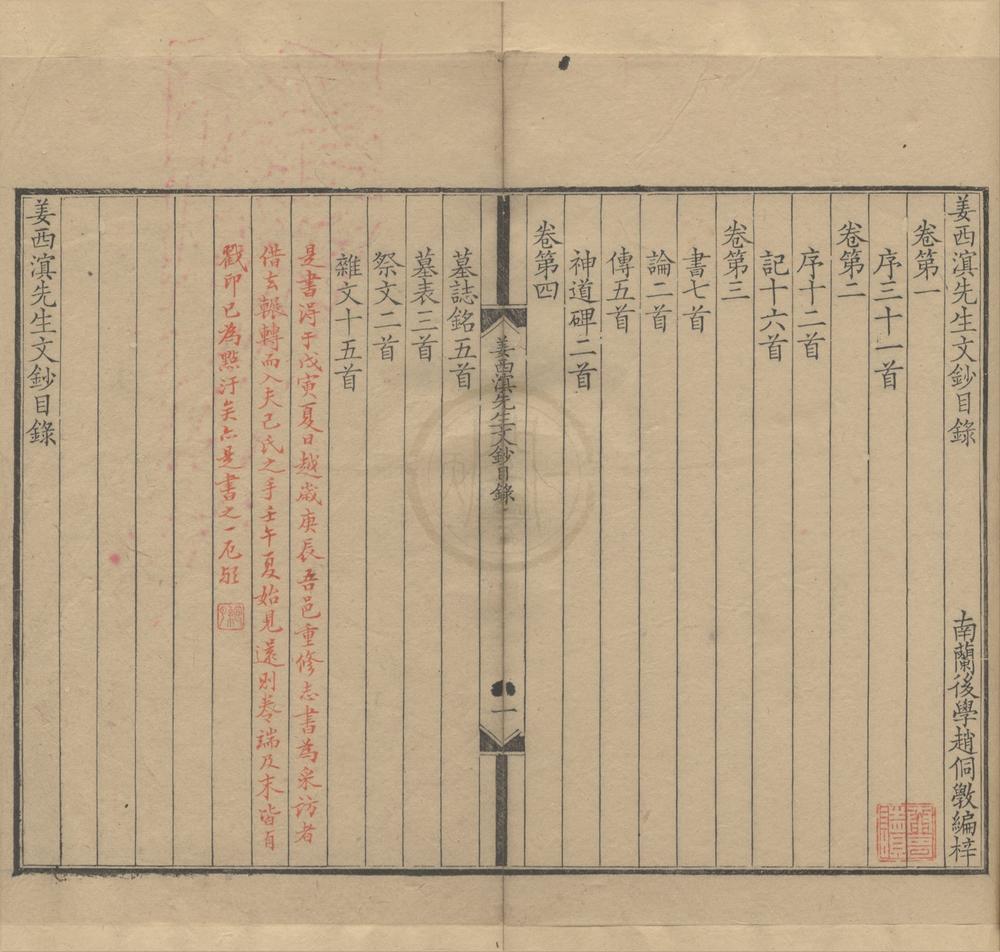 姜西溟先生文鈔目錄
南蘭後學趙侗斆編梓
卷第一
序三十一首
卷第二
序十二首
記十六首
卷第三
書七首
論二首
傳五首
神道碑二首
卷第四
姜西溟先生文鈔目錄
一
墓誌銘五首
墓表三首
祭文二首
雜文十五首
是書得于戊寅夏日越歲庚辰吾邑重修志書為采訪者
借去輾轉而入夫己氏之手壬午夏始見還則卷端及末皆有
戳印已為點汙矣亦是書之一厄歟
姜西溟先生文鈔目錄